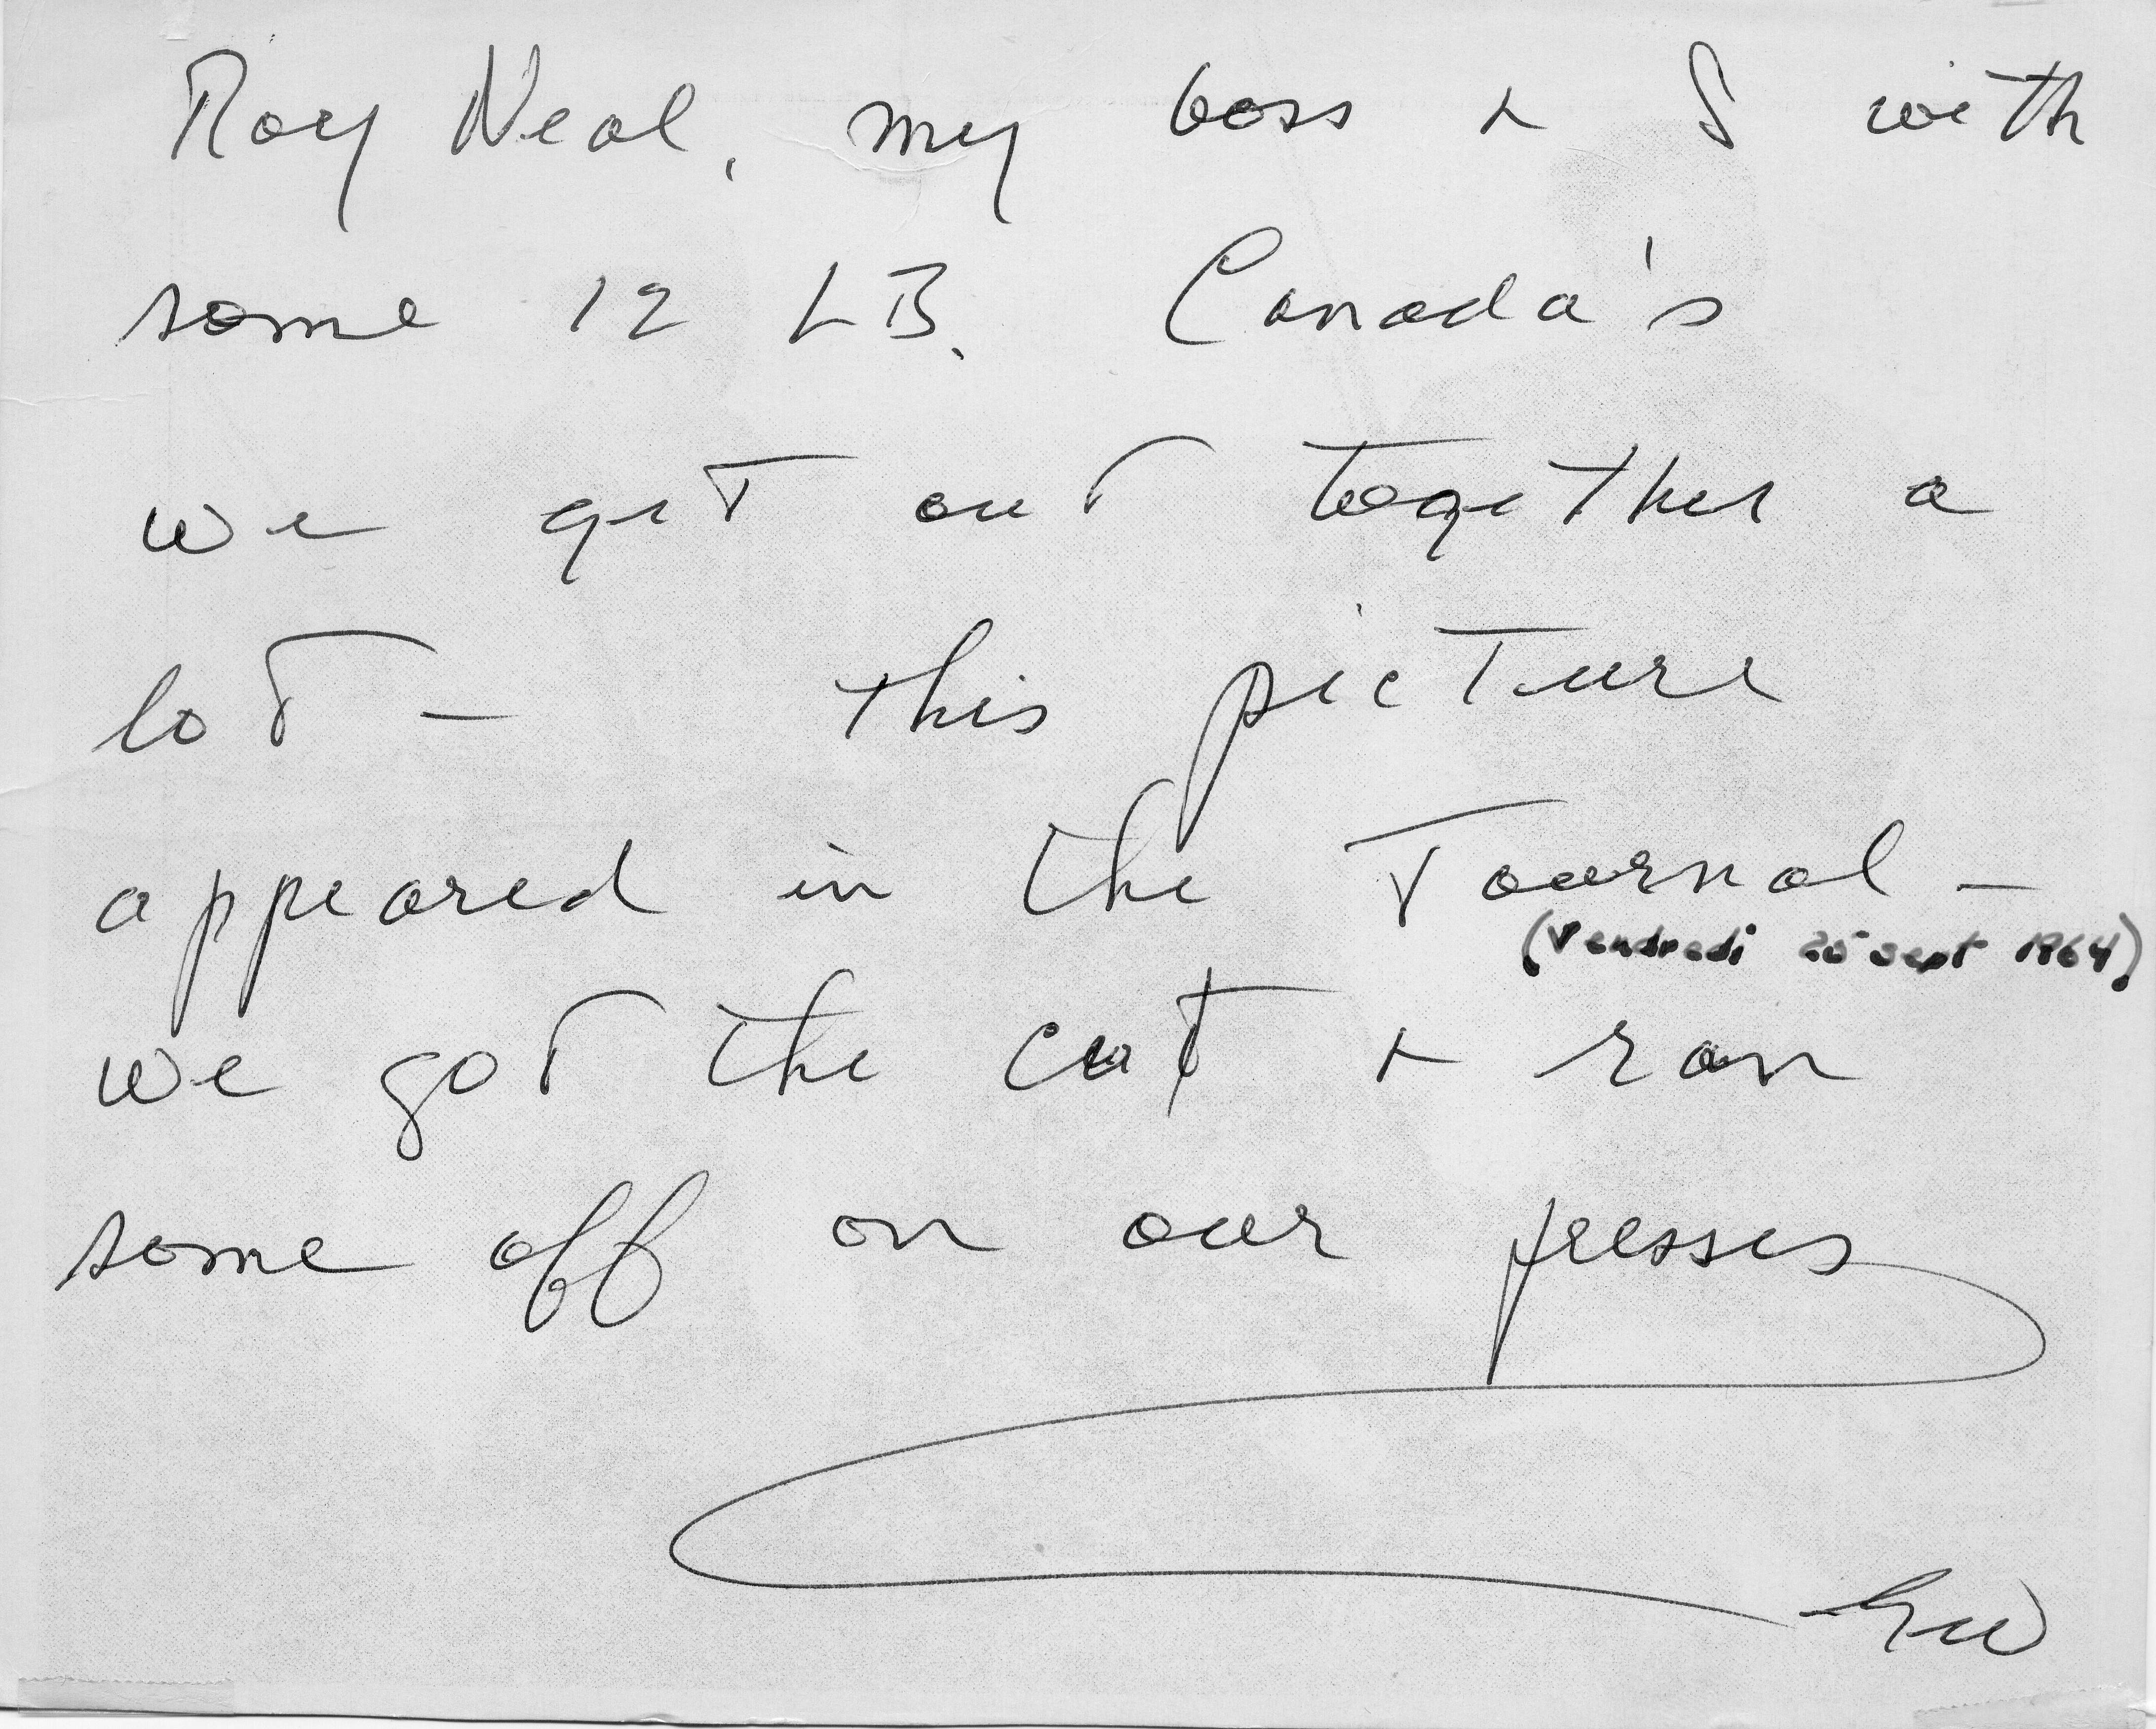 Roy Neal, my boss + I with
some 12 LB. Canada's
we get out together a
lot — this picture
appeared in the Journal —
(Vendredi 25 sept 1964)
we got the cut + ran
some off on our presses